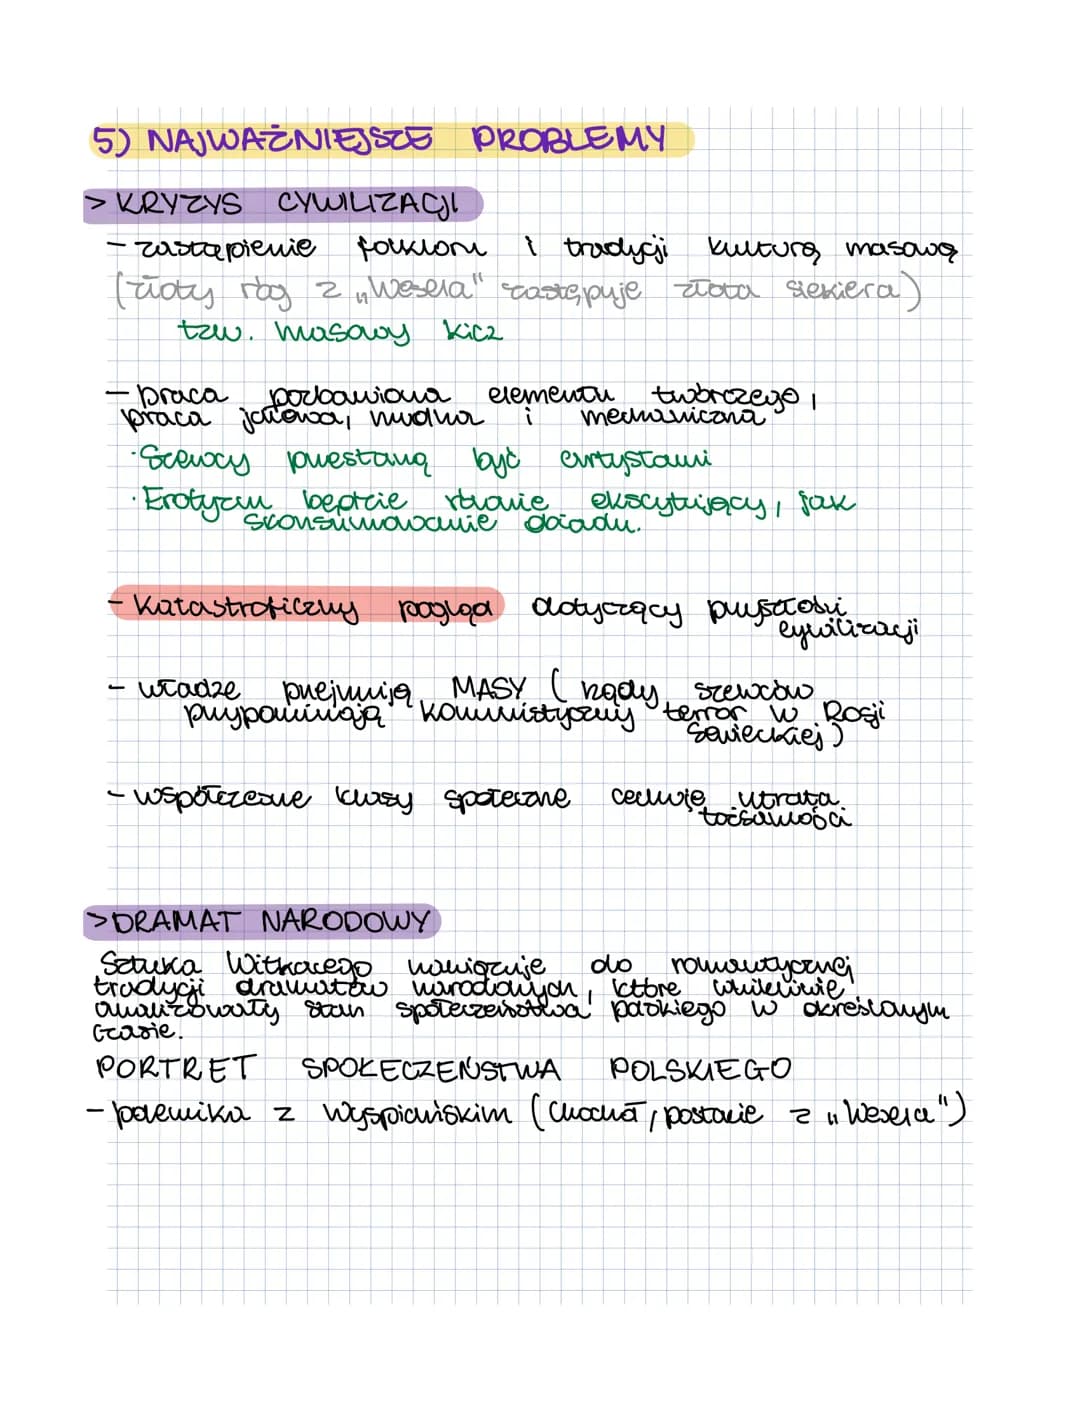 5) NAJWAŻNIEJSZE PROBLEMY
> KRYZYS CYWILIZACJI
- zastąpienie folkloru i tradycji kulturą masową
(złoty róg z „Wesela" zastępuje złota siekiera)
tzw. masowy kicz
- praca pozbawiona elementu twórczego,
praca jałowa, nudna i mechaniczna
· Szewcy przestaną być artystami
· Erotyzm będzie równie ekscytujący, jak
skonsumowanie obiadu.
- Katastroficzny pogląd dotyczący przyszłości
cywilizacji
- władze przejmują MASY (rządy szewców
przypominają komunistyczny terror w Rosji
Sowieckiej)
- współczesne klasy społeczne cechuje utrata
tożsamości
> DRAMAT NARODOWY
Sztuka Witkacego nawiązuje do romantycznej
tradycji dramatów narodowych, które wnikliwie
analizowały stan społeczeństwa polskiego w określonym
czasie.
PORTRET SPOŁECZEŃSTWA POLSKIEGO
- polemika z Wyspiańskim (Chochoł, postacie z „Wesela")